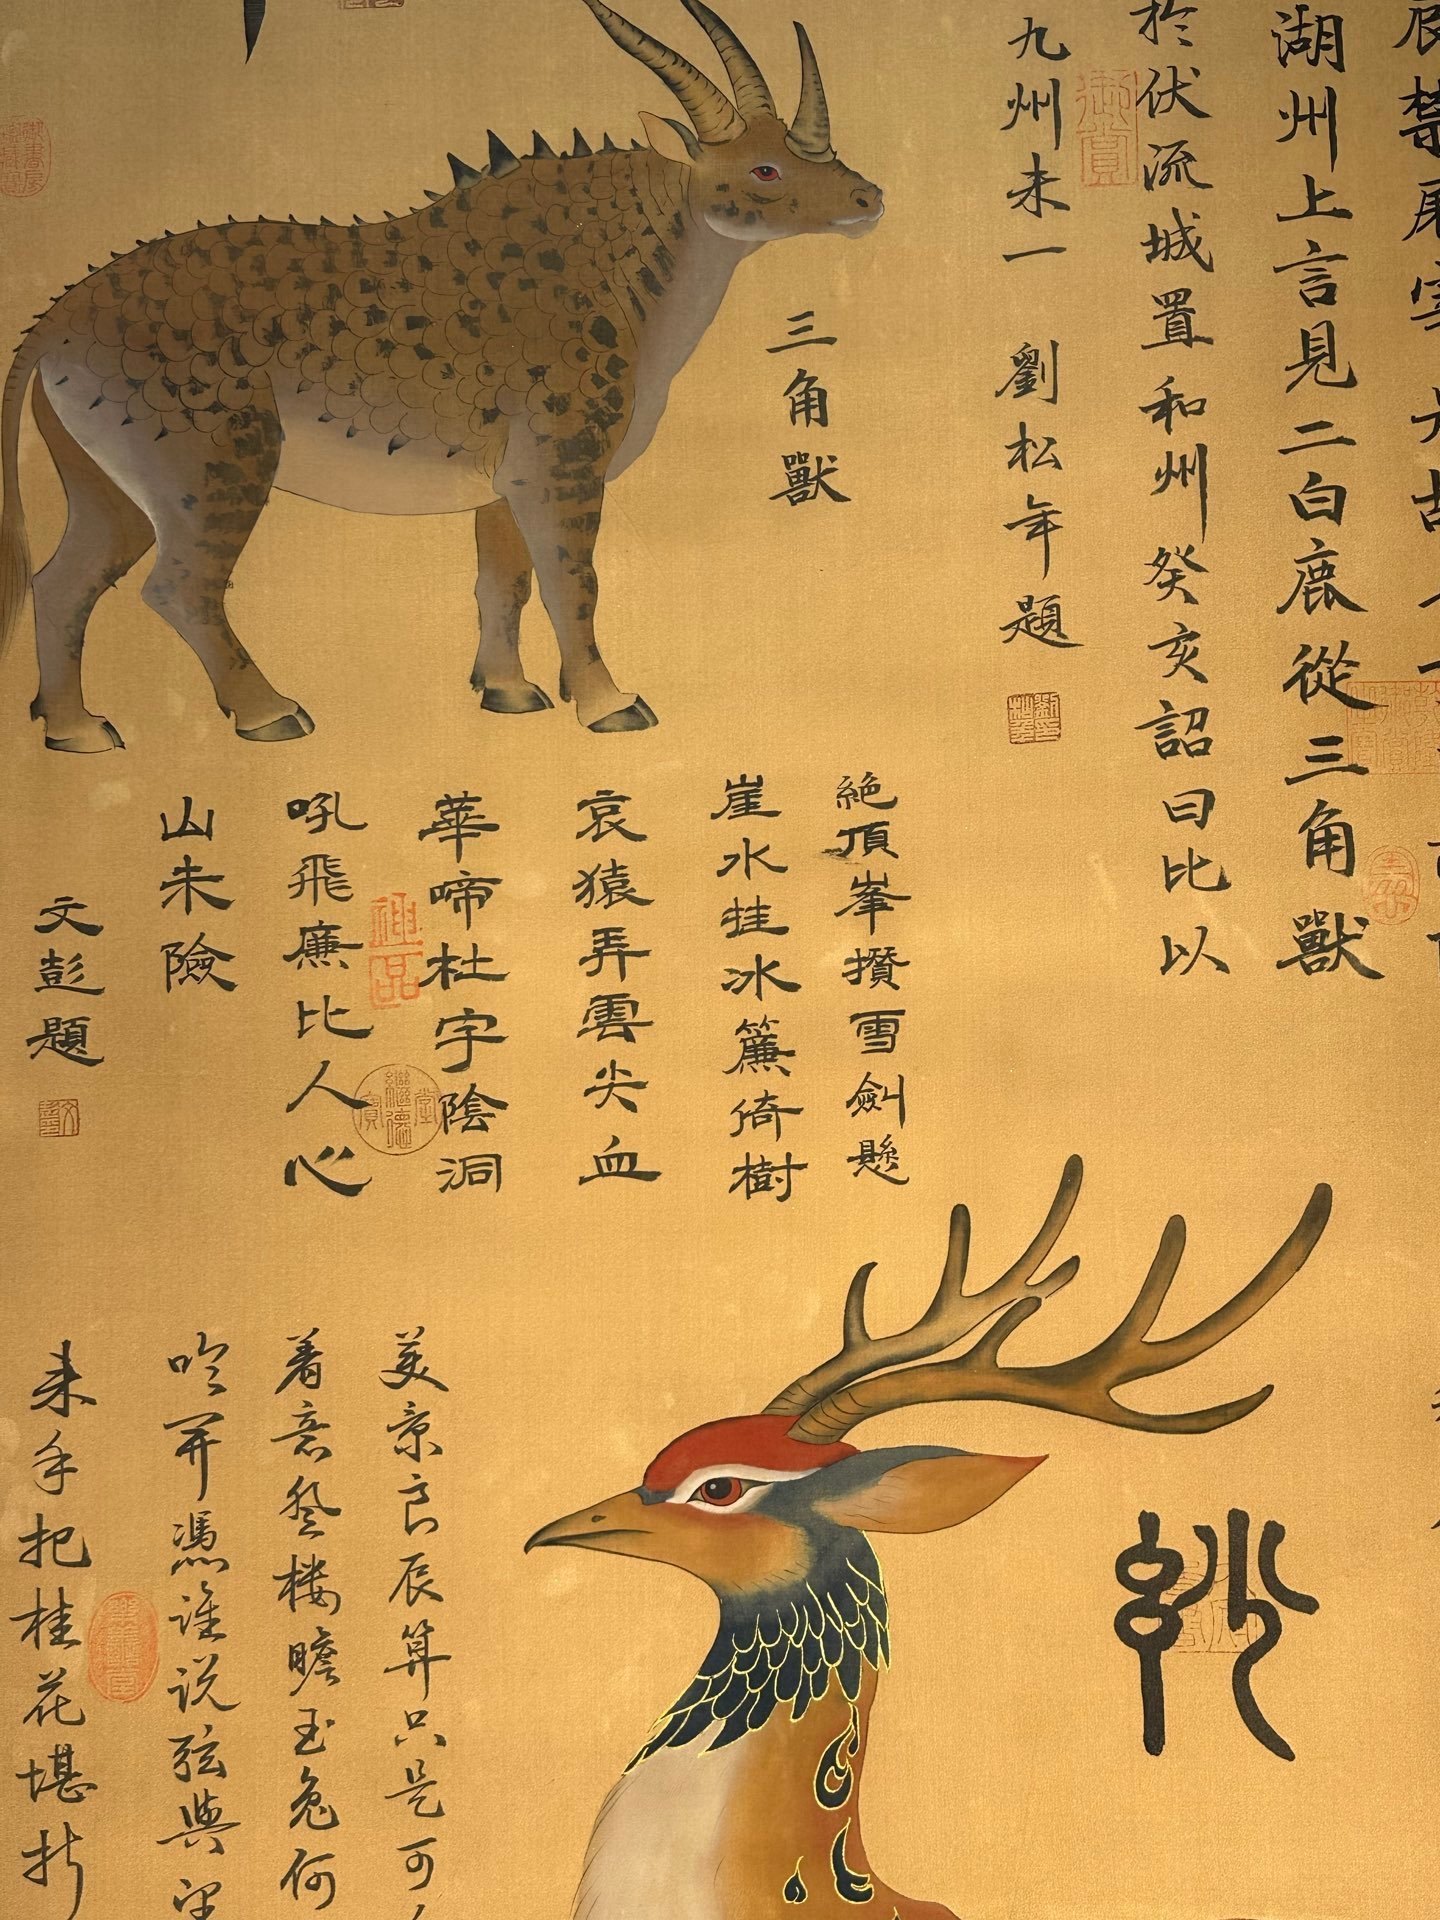 禁
湖州上言見二白鹿從三角獸
於伏流城置和州癸亥詔曰比以
九州未一
劉松年題
御賞
三角獸
絶頂峯攢雪劍懸
崖水挂冰簾倚樹
哀猿弄雲尖血
華啼杜宇陰洞
吼飛廉比人心
山未險
文彭題
神品
繼德堂寶
妙
美景良辰算只是可
着意登楼瞻玉兔何
吟笄馮誰説弦與
未手把桂花堪折